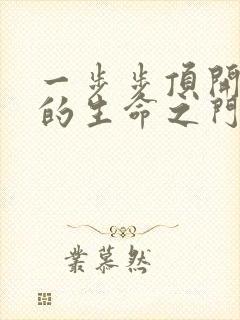 一步步頂開
的生命之門
業慕然